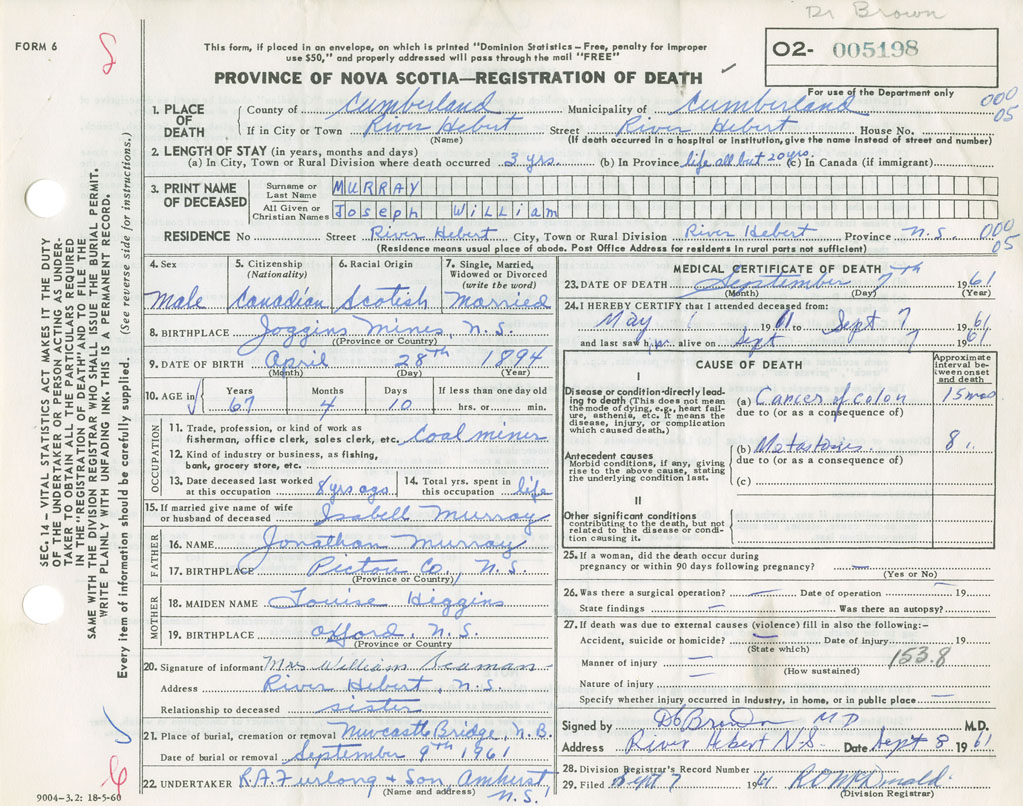 Dr Brown
FORM 6
This form, if placed in an envelope, on which is printed "Dominion Statistics – Free, penalty for improper
use $50," and properly addressed will pass through the mail "FREE"
O2- 005198
PROVINCE OF NOVA SCOTIA—REGISTRATION OF DEATH
For use of the Department only
1. PLACE OF DEATH
County of Cumberland Municipality of Cumberland 000
If in City or Town River Hebert Street River Hebert House No. 05
(Name) (If death occurred in a hospital or institution, give the name instead of street and number)
2. LENGTH OF STAY (in years, months and days)
(a) In City, Town or Rural Division where death occurred 3 yrs. (b) In Province life all but 20 yrs (c) In Canada (if immigrant)
3. PRINT NAME OF DECEASED
Surname or Last Name MURRAY
All Given or Christian Names Joseph William
RESIDENCE No Street River Hebert City, Town or Rural Division River Hebert Province N.S. 000 05
(Residence means usual place of abode. Post Office Address for residents in rural parts not sufficient)
4. Sex
Male
5. Citizenship (Nationality)
Canadian
6. Racial Origin
Scotish
7. Single, Married, Widowed or Divorced (write the word)
Married
8. BIRTHPLACE Joggins Mines, N.S.
(Province or Country)
9. DATE OF BIRTH April 28th 1894
(Month) (Day) (Year)
10. AGE in Years Months Days If less than one day old
67 4 10 hrs. or min.
OCCUPATION
11. Trade, profession, or kind of work as
fisherman, office clerk, sales clerk, etc. Coal miner
12. Kind of industry or business, as fishing,
bank, grocery store, etc.
13. Date deceased last worked at this occupation 8 yrs ago
14. Total yrs. spent in this occupation life
15. If married give name of wife
or husband of deceased Isabell Murray
FATHER
16. NAME Jonathan Murray
17. BIRTHPLACE Pictou Co, N.S.
(Province or Country)
MOTHER
18. MAIDEN NAME Louise Higgins
19. BIRTHPLACE Oxford, N.S.
(Province or Country
20. Signature of informant Mrs William Seaman
Address River Hebert, N.S.
Relationship to deceased sister
21. Place of burial, cremation or removal Bridge, N.B.
Date of burial or removal September 9th 1961
22. UNDERTAKER R.A. Furlong + Son, Amherst, N.S.
(Name and address)
9004-3.2: 18-5-60
MEDICAL CERTIFICATE OF DEATH
23. DATE OF DEATH September 7th 1961
(Month) (Day) (Year)
24. I HEREBY CERTIFY that I attended deceased from:
May 1 1961 to Sept 7 1961
and last saw him alive on Sept 7 1961
CAUSE OF DEATH
Approximate interval between onset and death
I
Disease or condition directly leading to death (This does not mean the mode of dying, e.g., heart failure, asthenia, etc. It means the disease, injury, or complication which caused death.)
(a) Cancer of colon 15 mos
due to (or as a consequence of)
Antecedent causes
Morbid conditions, if any, giving rise to the above cause, stating the underlying condition last.
(b) Metastases. 8 "
due to (or as a consequence of)
(c)
II
Other significant conditions
contributing to the death, but not related to the disease or condition causing it.
25. If a woman, did the death occur during
pregnancy or within 90 days following pregnancy? —
(Yes or No)
26. Was there a surgical operation? — Date of operation 19
State findings — Was there an autopsy?
27. If death was due to external causes (violence) fill in also the following:–
Accident, suicide or homicide? — Date of injury 19
(State which)
153.8
Manner of injury —
(How sustained)
Nature of injury —
Specify whether injury occurred in industry, in home, or in public place —
Signed by MD M.D.
Address River Hebert N.S. Date Sept 8 1961
28. Division Registrar's Record Number
29. Filed Sept 7 1961
(Division Registrar)
SEC. 14 – VITAL STATISTICS ACT MAKES IT THE DUTY
OF THE UNDERTAKER OR PERSON ACTING AS UNDER-
TAKER TO OBTAIN ALL THE PARTICULARS REQUIRED
IN THE "REGISTRATION OF DEATH" AND TO FILE THE
SAME WITH THE DIVISION REGISTRAR WHO SHALL ISSUE THE BURIAL PERMIT.
WRITE PLAINLY WITH UNFADING INK. THIS IS A PERMANENT RECORD.
Every item of information should be carefully supplied. (See reverse side for instructions.)